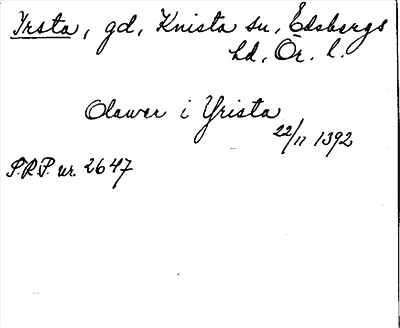 Yrsta, gd, Knista sn, Edsbergs
hd, Ör. l.
Olawer i Yrista
22/11 1392
S.R.P. nr. 2647